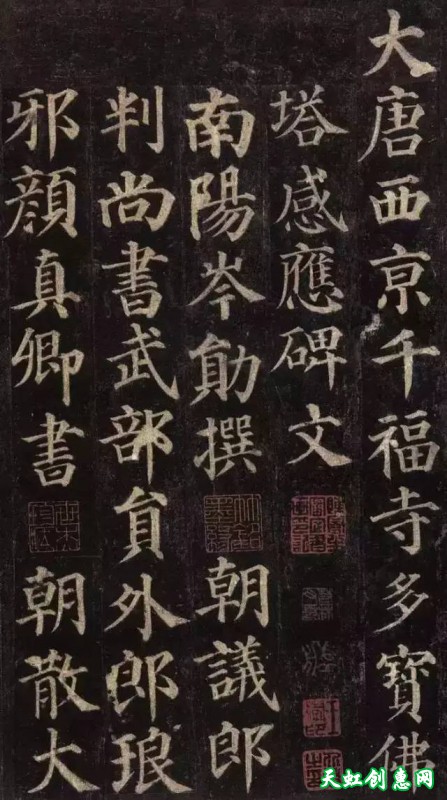 大唐西京千福寺多寶佛
塔感應碑文
南陽岑勛撰 朝議郎
判尚書武部員外郎琅
邪顏真卿書 朝散大
天虹创惠网